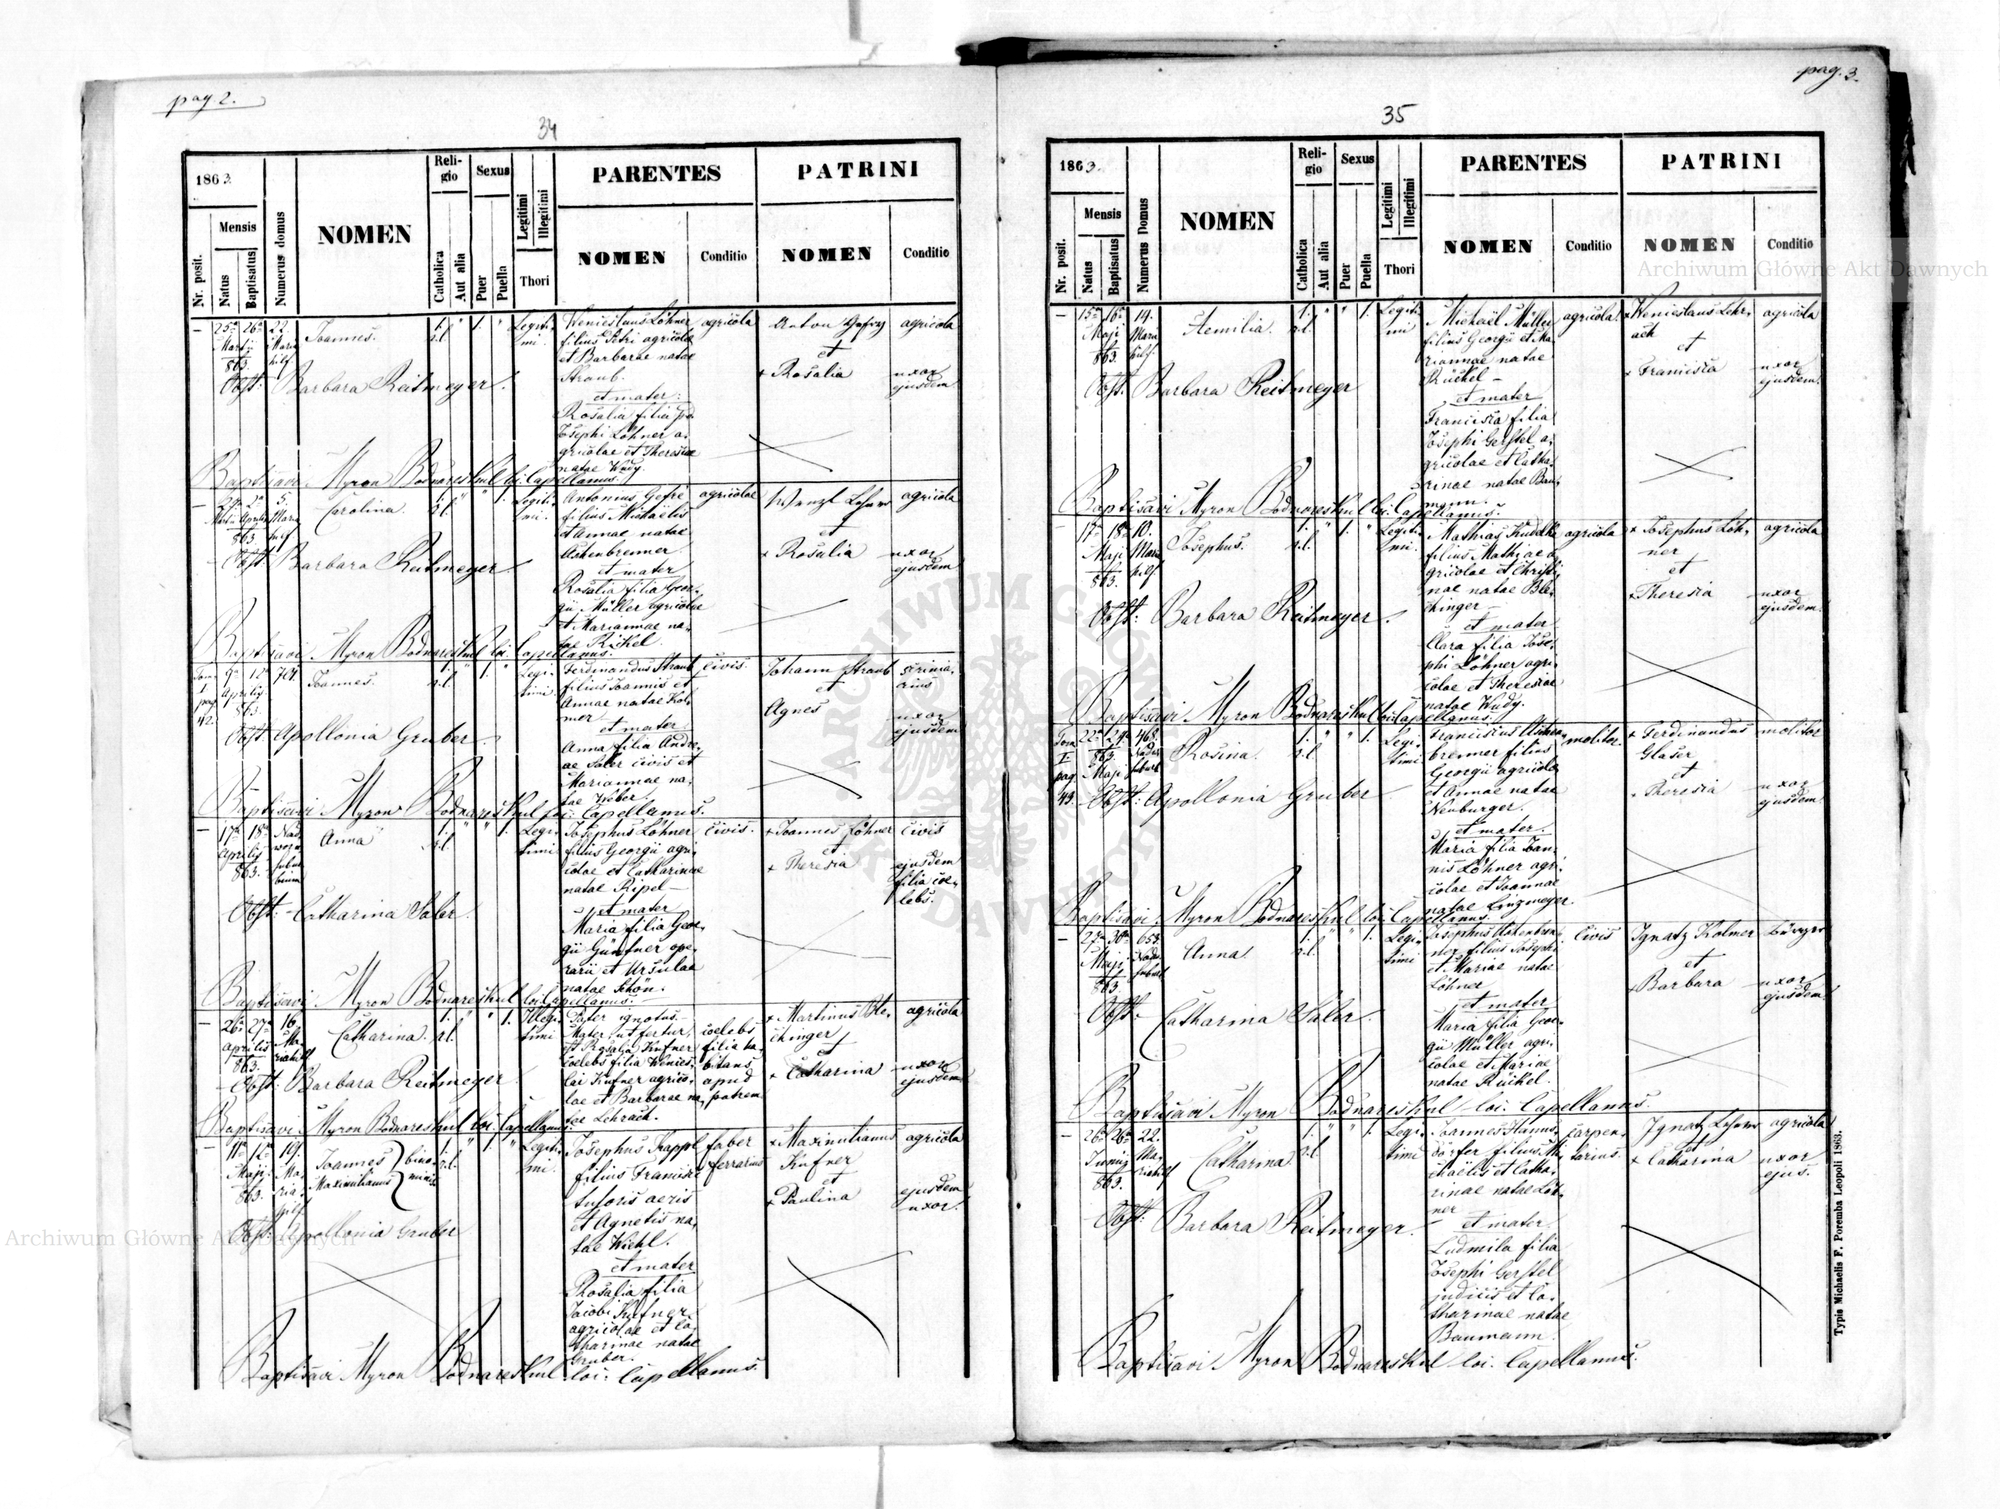 pag 2.
34
1863.
Mensis
Nr. posit.
Natus
Baptisatus
Numerus domus
NOMEN
Religio
Catholica
Aut alia
Sexus
Puer
Puella
Legitimi
Illegitimi
Thori
PARENTES
NOMEN
Conditio
PATRINI
NOMEN
Conditio
25a 26a 22.
Martii Maria
863. hilf.
Joannes.
r.l.
Legiti-
mi.
Wenceslaus Löhner
filius Petri agricolae
et Barbarae natae
Straub.
et mater:
Rosalia filia
Josephi Löhner a-
gricolae et Theresiae
natae Wudy.
agricola
Anton Gefry
et
+ Rosalia
agricola
uxor
ejusdem
Obst: Barbara Reitmeyer.
Baptisavi Myron Bodnareskul loi. Capellanus.
29a 2a 5.
Mart. Aprilis Maria
863. hilf
Carolina.
r.l.
Legiti-
mi.
Antonius Gefre
filius Michaelis
et Annae natae
Aschenbrenner
et mater
Rosalia filia Geor-
gii Müller agricolae
et Mariannae na-
tae Rückel.
agricolae
Wenzl Lehner
et
+ Rosalia
agricola
uxor
ejusdem
Obst. Barbara Reitmeyer.
Baptisavi Myron Bodnareskul loi. Capellanus.
Tom.
I
pag
42.
9a 12a 701
Aprilis
863.
Joannes.
r.l.
Legi-
timi
Ferdinandus Straub
filius Joannis et
Annae natae Kol-
mer
et mater
Anna filia Andre-
ae Saler civis et
Mariannae na-
tae Weber.
civis.
Johann Straub
et
Agnes
scrinia-
rius
uxor
ejusdem
Obst. Apollonia Gruber.
Baptisavi Myron Bodnareskul loi. Capellanus.
17a 18a
Aprilis
863.
Anna
r.l.
Legi-
timi
Josephus Löhner
filius Georgii agri-
colae et Catharinae
natae Ripel-
et mater
Maria filia Geor-
gii Güntner ope-
rarii et Ursulae
natae Schön.
civis.
+ Joannes Löhner
et
+ Theresia
civis
ejusdem
filia coe-
lebs.
Obst. Catharina Saler.
Baptisavi Myron Bodnareskul loi. Capellanus.
26a 27a 16.
Aprilis Ma-
863. riahilf
Catharina.
r.l.
Illegi-
timi
Pater ignotus.
Mater ut fertur,
est Rosalia Kufner
coelebs filia Wences-
lai Kufner agrico-
lae et Barbarae na-
tae Lehrach.
coelebs
filia ha-
bitans
apud
patrem
+ Martinus Ble-
chinger
et
+ Catharina
agricola
uxor
ejusdem
Obst. Barbara Reitmeyer
Baptisavi Myron Bodnareskul loi. Capellanus.
11a 12a 19.
Maji Ma-
863. ria-
hilf
Joannes
Maximilianus
bino-
minis
r.l.
Legiti-
mi.
Josephus Trappl
filius Francisci
fusoris aeris
et Agnetis na-
tae Wiehl.
et mater
Rosalia filia
Jacobi Kufner
agricolae et Ca-
tharinae natae
Gruber.
faber
ferrarius
+ Maximilianus
Kufner
et
+ Paulina
agricola
ejusdem
uxor.
Obst: Apollonia Gruber
Baptisavi Myron Bodnareskul loi. Capellanus.
pag. 3.
35
1863.
Mensis
Nr. posit.
Natus
Baptisatus
Numerus Domus
NOMEN
Religio
Catholica
Aut alia
Sexus
Puer
Puella
Legitimi
Illegitimi
Thori
PARENTES
NOMEN
Conditio
PATRINI
NOMEN
Conditio
15a 16a 19.
Maji Maria
863. hilf.
Aemilia.
r.l.
Legiti-
mi
Michaël Müller
filius Georgii et Ma-
riannae natae
Rückel-
et mater
Francisca filia
Josephi Gerstel a-
gricolae et Catha-
rinae natae Bau-
mann.
agricola.
+ Wenceslaus Lehr-
ach
et
+ Francisca
agricola
uxor
ejusdem.
Obst. Barbara Reitmeyer
Baptisavi Myron Bodnareskul loi. Capellanus.
17a 18a 10.
Maji Maria
863. hilf
Josephus.
r.l.
Legiti-
mi.
Mathias Kudelka
filius Mathiae a-
gricolae et Christi-
nae natae Ble-
chinger
et mater
Clara filia Jose-
phi Löhner agri-
colae et Theresiae
natae Wudy.
agricola
+ Josephus Löh-
ner
et
+ Theresia
agricola
uxor
ejusdem.
Obst: Barbara Reitmeyer.
Baptisavi Myron Bodnareskul loi. Capellanus.
Tom
I.
pag.
43.
22a 24a 468.
863.
Maji
Rosina.
r.l.
Legi-
timi
Franciscus Aschen-
brenner filius
Georgii agricolae
et Annae natae
Neuburger.
et mater.
Maria filia Joan-
nis Löhner agri-
colae et Joannae
natae Linzmeyer.
molitor.
+ Ferdinandus
Glaser
et
+ Theresia
molitor
uxor
ejusdem
Obst: Apollonia Gruber
Baptisavi Myron Bodnareskul loi. Capellanus.
27a 30a 653.
Maji
863.
Anna
r.l.
Legi-
timi
Josephus Aschenbren-
ner filius Josephi
et Mariae natae
Löhner
et mater
Maria filia Geor-
gii Müller agri-
colae et Mariae
natae Rückel.
civis
Ignatz Kolmer
et
+ Barbara
Bürger
uxor
ejusdem
Obst. Catharina Saler.
Baptisavi Myron Bodnareskul loi. Capellanus.
26a 26a 22.
Junii Ma-
863. riahilf
Catharina.
r.l.
Legi-
timi
Joannes Hanus-
dörfer filius Mi-
chaëlis et Catha-
rinae natae Löh-
ner
et mater.
Ludmila filia
Josephi Gerstel
judicis et Ca-
tharinae natae
Baumann.
carpen-
tarius.
Ignatz Lehner
et
+ Catharina
agricola
uxor
ejus.
Obst: Barbara Reitmeyer.
Baptisavi Myron Bodnareskul loi. Capellanus.
Typis Michaelis F. Poremba Leopoli 1863.
Archiwum Główne Akt Dawnych
Archiwum Główne Akt Dawnych
ARCHIWUM GŁÓWNE AKT DAWNYCH